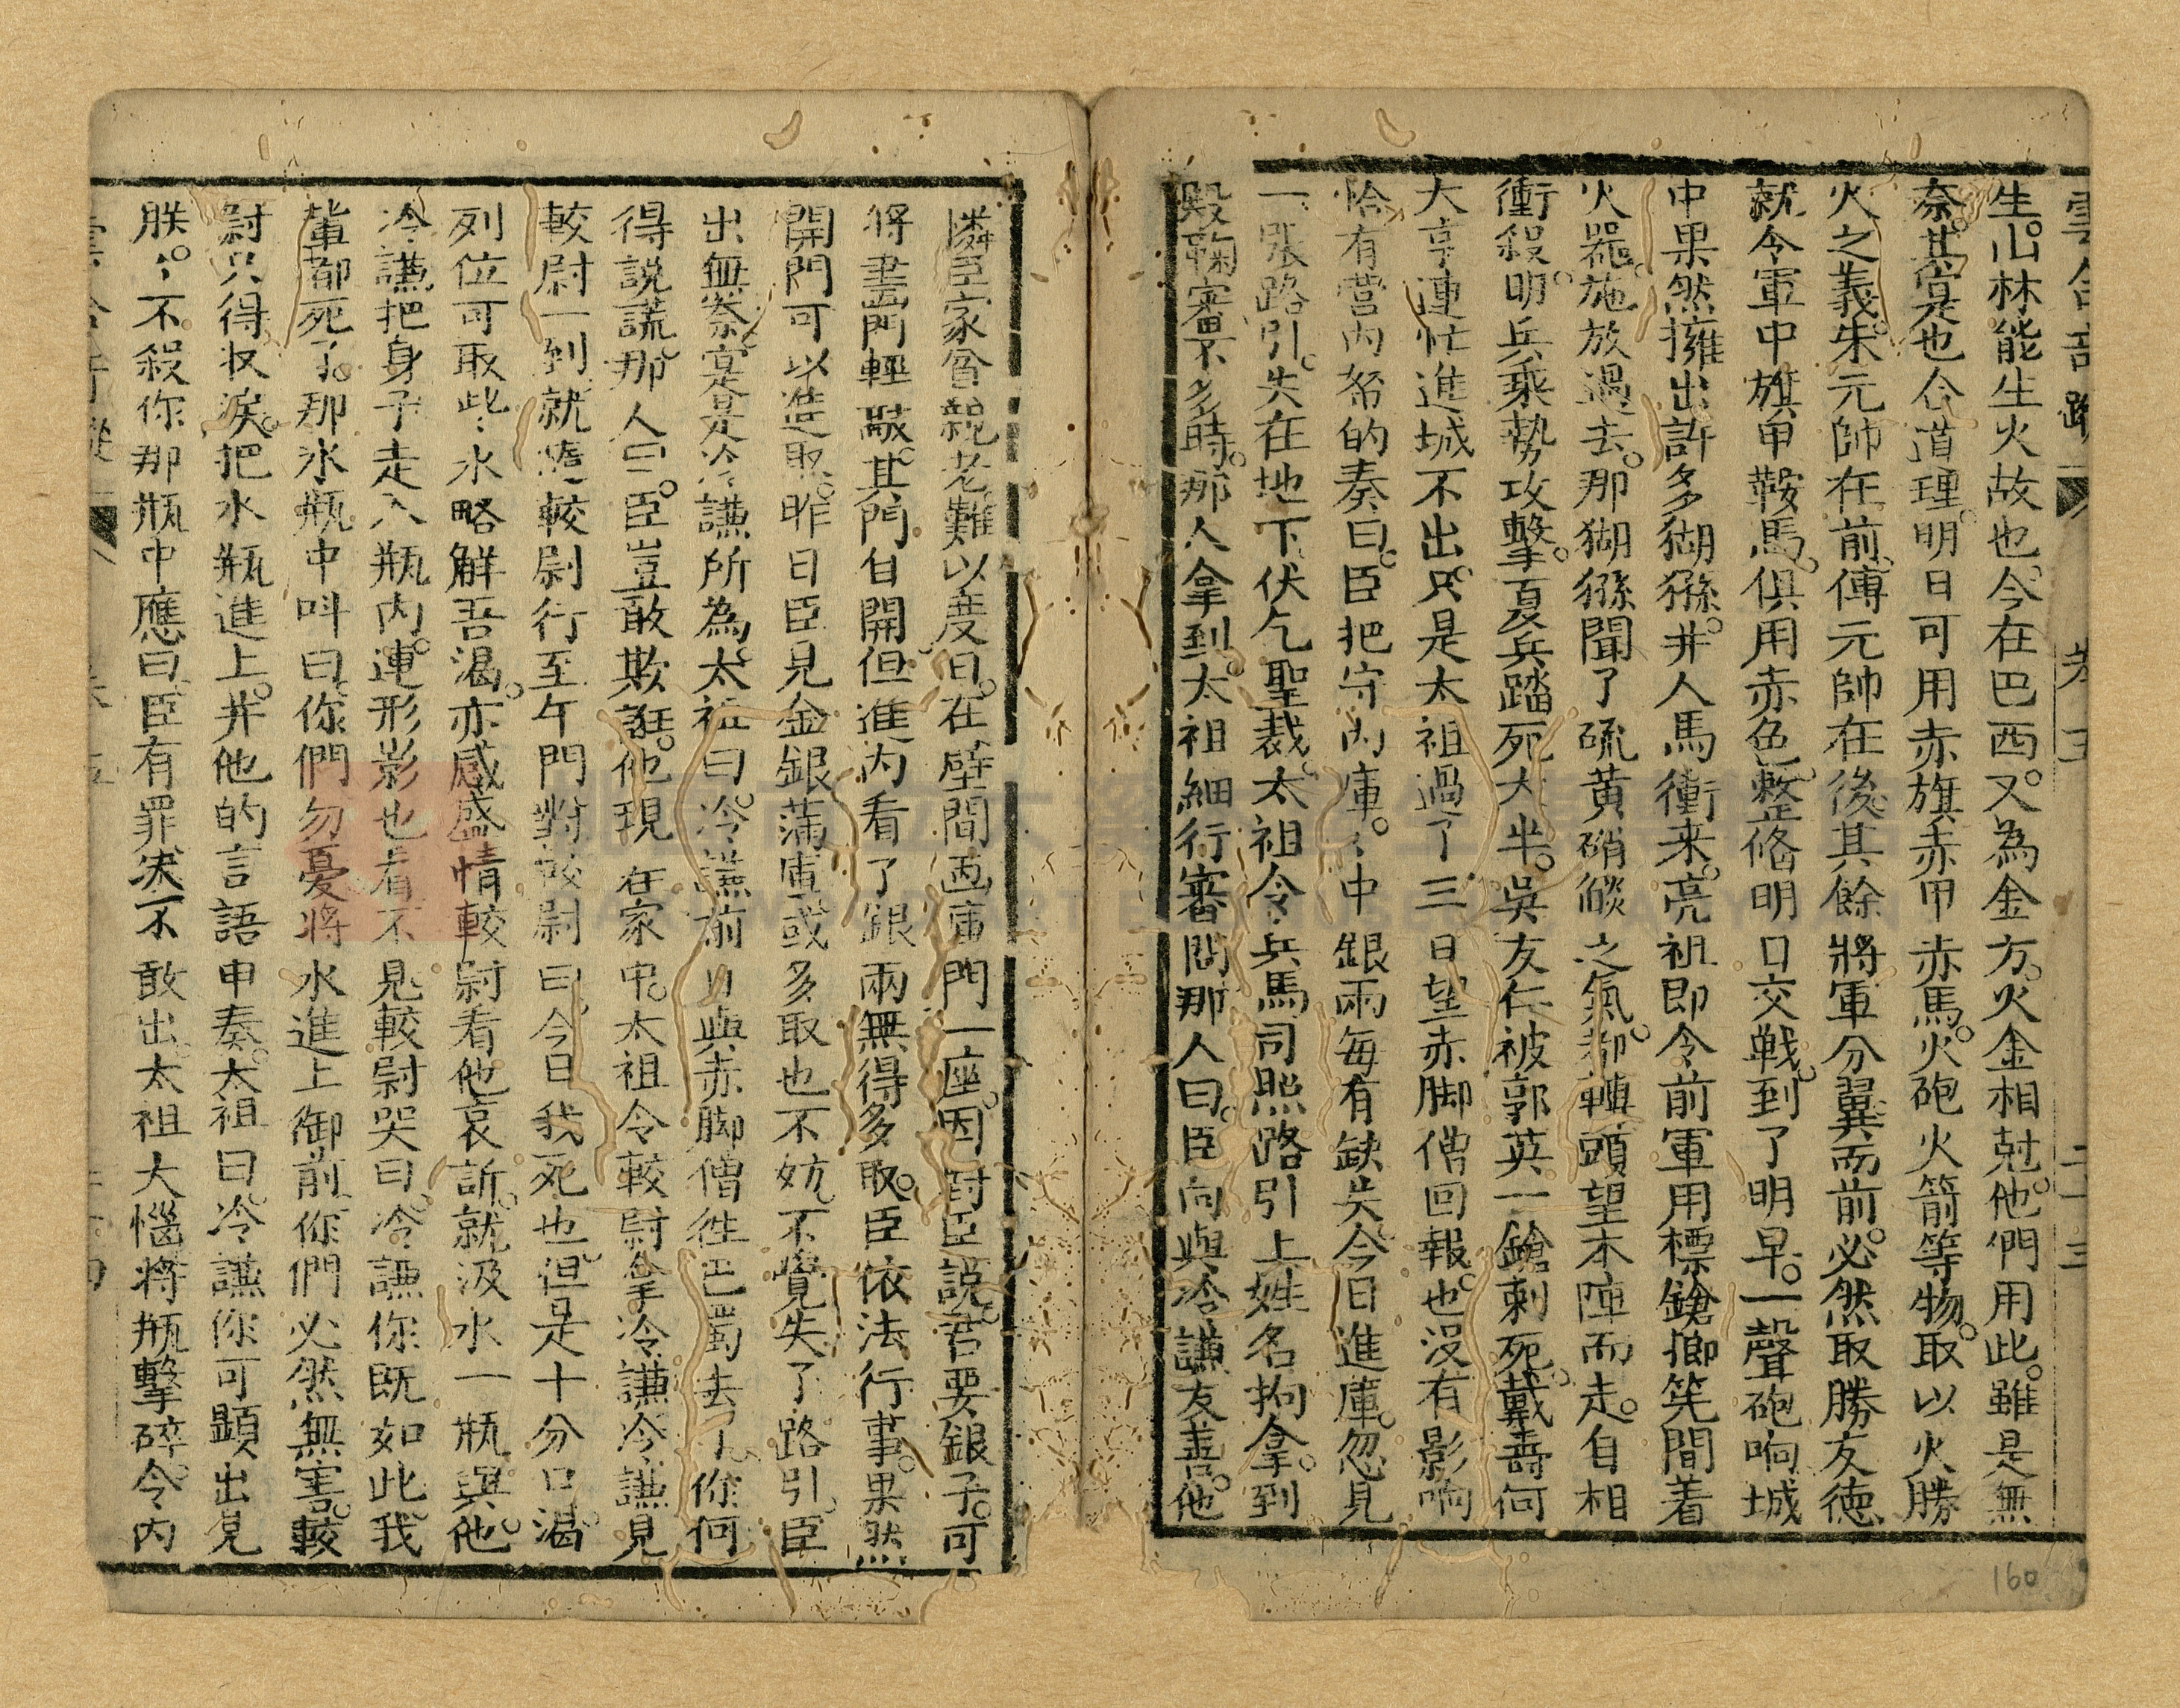 生。山林能生火故也。今在巴西。又為金方。火金相尅。他們用此。雖是無
奈。其寔是也合道理。明日可用赤旗赤甲赤馬。火砲火箭等物。取以火勝
火之義。朱元帥在前。傅元帥在後。其餘將軍分翼而前。必然取勝友德
就令軍中旗甲鞍馬。俱用赤色。整俻明日交戦。到了明早。一聲砲响城
中果然擁出許多猢猻。并人馬衝来。亮祖即令前軍用標鎗撾筅間着
火噐。施放過去。那猢猻聞了硫黄硝燄之氣。都轉頭望本陣而走。自相
衝殺。明兵乘勢攻擊。夏兵踏死大半。吳友仁被郭英一鎗刺死。戴壽何
大亨連忙進城不出。只是太祖過了三日望赤脚僧回報。也没有影响
恰有營内帑的奏曰。臣把守内庫。〻中銀兩每有缺失今日進庫。忽見
一張路引。失在地下。伏乞聖裁。太祖令兵馬司照路引上姓名拘拿。到
殿鞠審。不多時。那人拿到。太祖細行審問那人曰。臣向與冷謙友善。他
憐臣家貧親老難以度日。在壁間画庫門一座。因對臣說君要銀子。可
將畫門輕敲。其門自開。但進内看了銀兩無得多取。臣依法行事。果然
開門可以造取。昨日臣見金銀滿庫。或多取也不妨。不覺失了路引。臣
出無奈。寔是冷謙所為。太祖曰。冷謙前日與赤脚僧徃巴蜀去了。你何
得說謊。那人曰。臣豈敢欺誑。他現在家中。太祖令較尉拿冷謙冷謙見
較尉一到。就隨較尉行至午門對較尉曰。今日我死也。但是十分口渴。
列位可取些水略解吾渴。亦感盛情較尉看他哀訴。就汲水一瓶與他。
冷謙把身子走入瓶内。連形影也看不見。較尉哭曰。冷謙你既如此。我
輩都死了。那水瓶中呌曰。你們勿憂將水進上御前。你們必然無害。較
尉只得收淚。把水瓶進上。并他的言語申奏。太祖曰。冷謙你可顕出見
朕。〻不殺你那瓶中應曰。臣有罪决不敢出。太祖大惱將瓶擊碎。令内